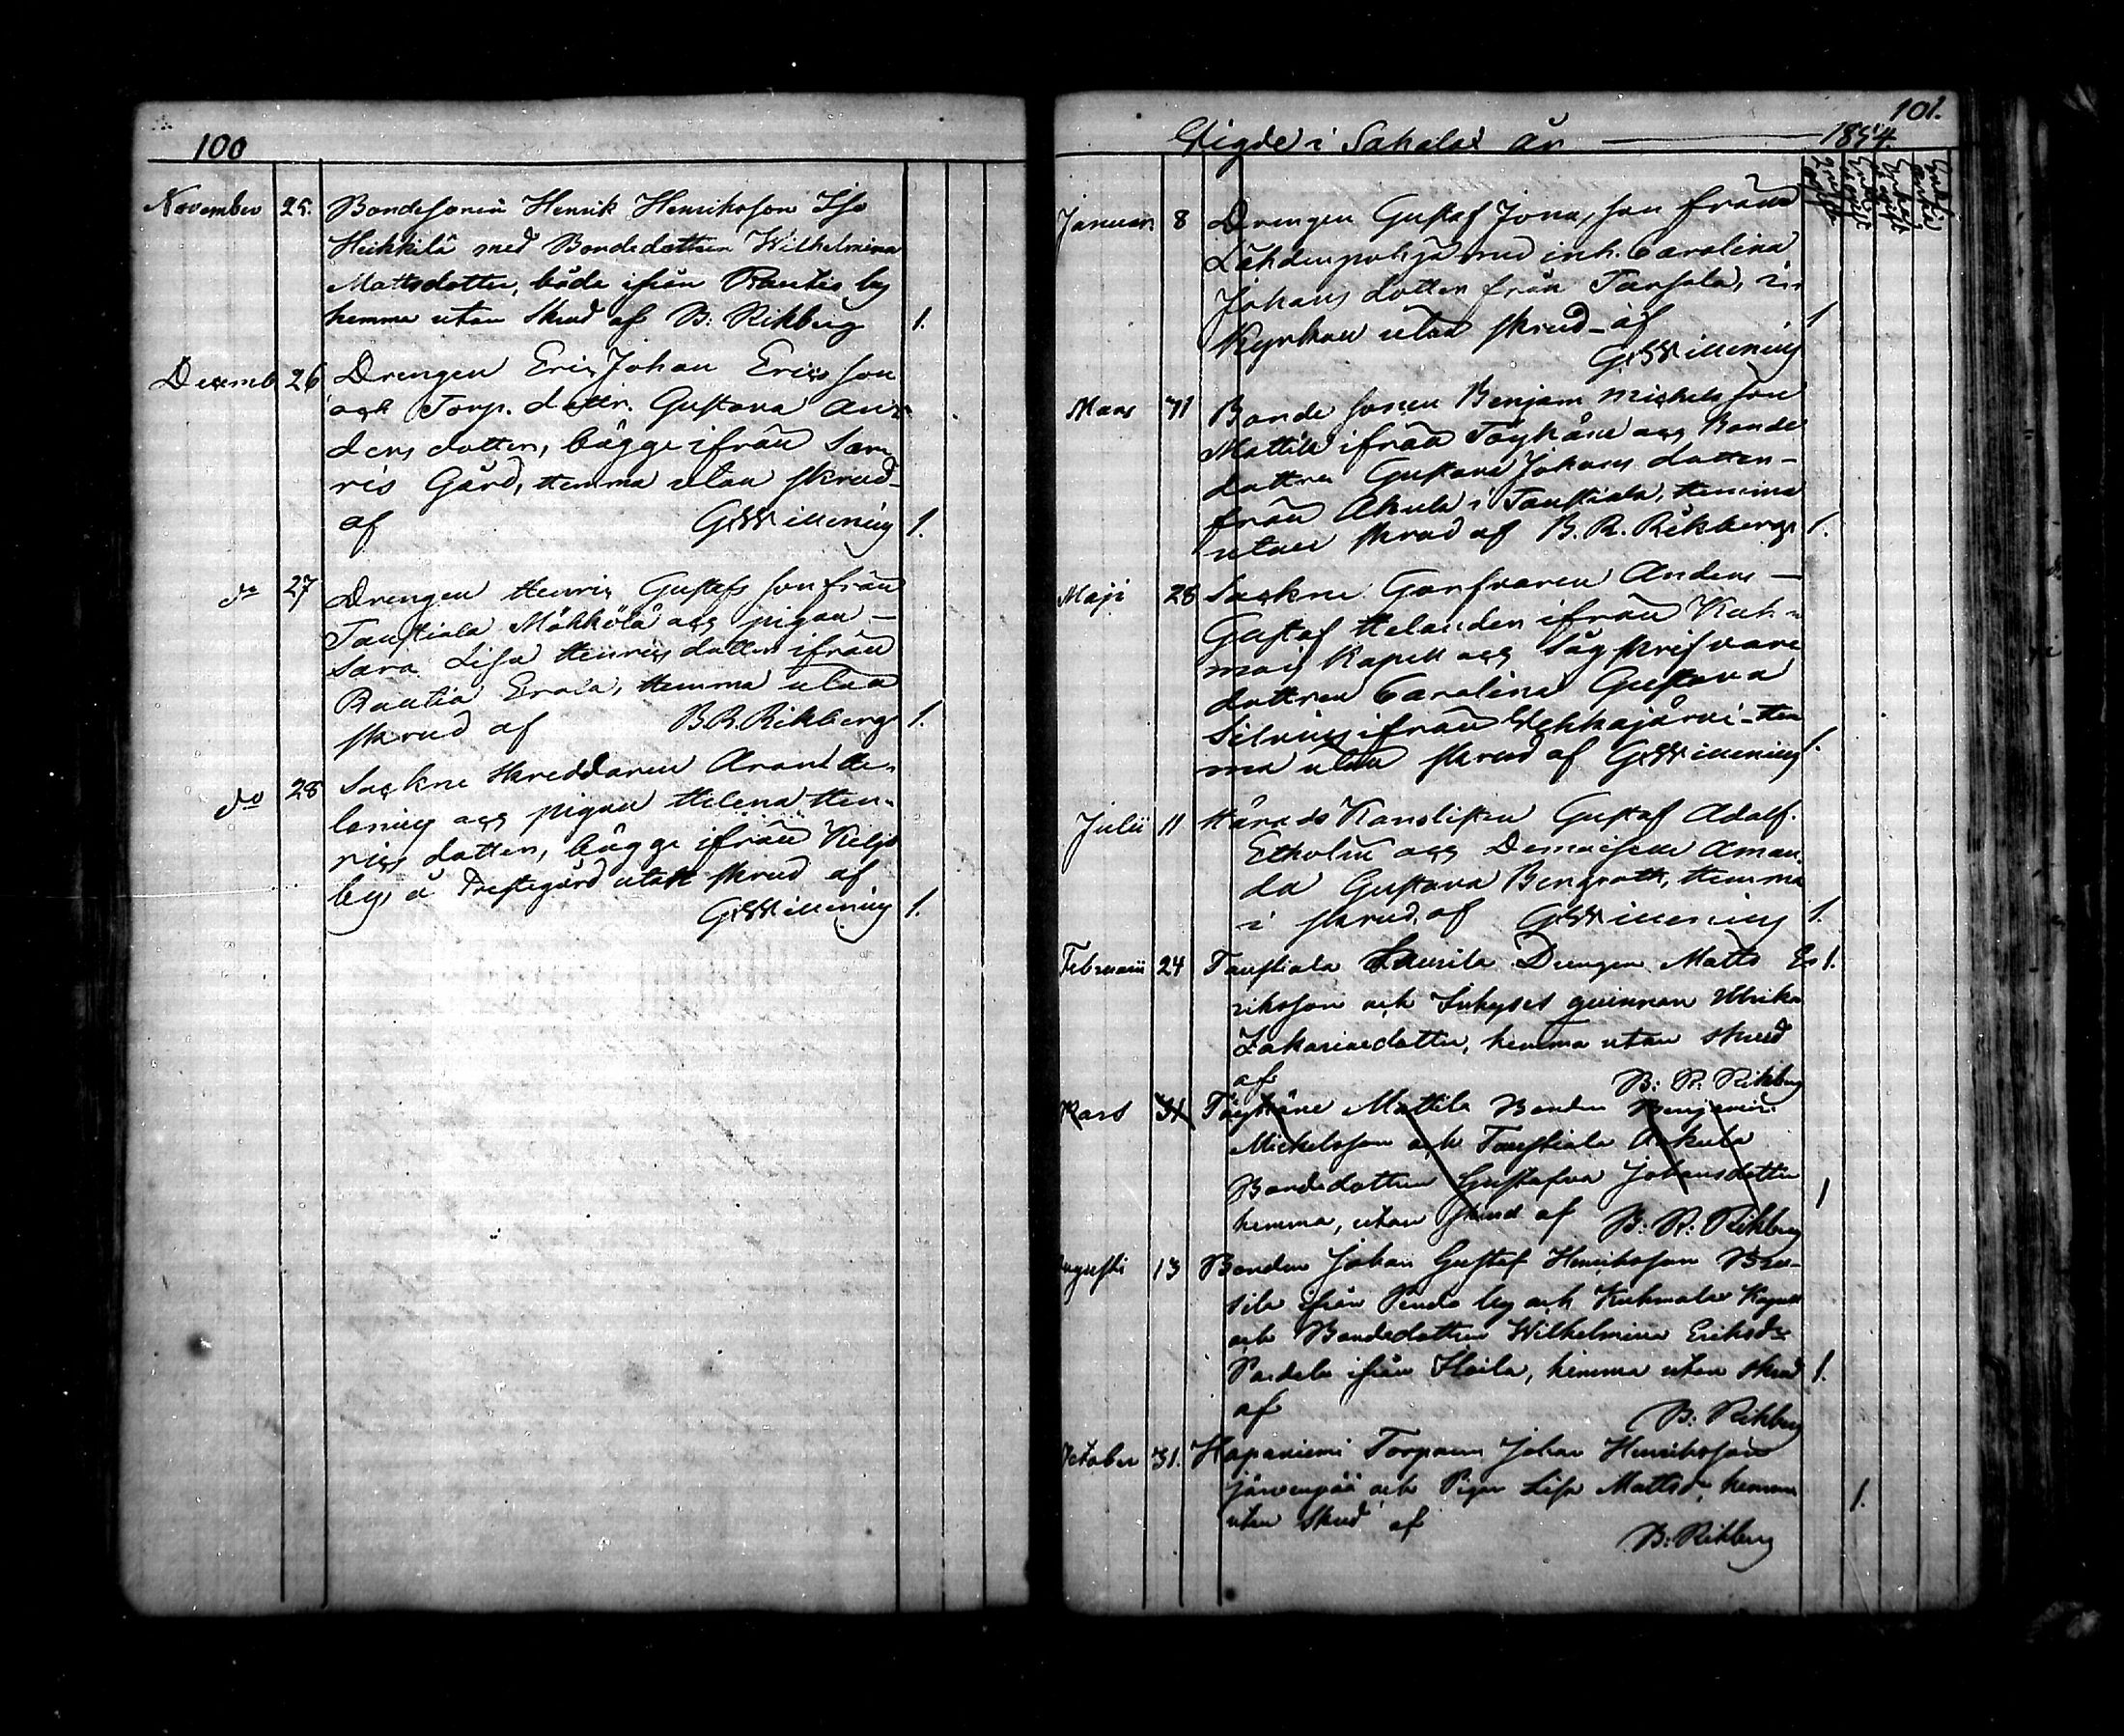 100
November 25. Bondesonen Henrik Henriksson Iso
Heikkilä med Bondedottren Wilhelmina
Mattsdotter, både ifrån Rautis by
hemma utan Skrud af B: Rikberg 1.
Decemb 26 Drengen Eric Johan Ericsson
och Torp. dottr. Gustava An-
ders dotter, bägge ifrån Saa-
ris Gård, Hemma utan skrud
af G:W:illening 1.
do 27 Drengen Henric Gustafs son från
Taustiala Möhkölä och pigan
Sara Lisa Henrics dotter ifrån
Rautia Erola, Hemma utan
skrud af B.R.Rikberg 1.
do 28 Sockne Skreddaren
och pigan Helena Hen-
rics dotter, bägge ifrån Keljo
by, å Prestegård utan skrud af
G:W:illening 1.
101.
Vigde i Sahalax År 1854
Januari 8 Drengen Gustaf Jonas son från
Lähdenpohja med inh. Carolina
Johans dotter från
Kyrkan utan skrud af 1
G:W:illening
Mars 31 Bonde sonen Benjam Michelsson
Mattila ifrån Töyhäne och Bonde
dottren Gustava Johans dotter
från Akula i Taustiala, Hemma
utan skrud af B.R. Rikberg 1.
Maji 28 Sockne Garfvaren Anders
Gustaf Helander ifrån Kuh-
mois Kapell och Sågskrifvare
dottren Carolina Gustava
Silvius ifrån Wehkajärvi Hem
ma utan skrud af G:W:illening 1.
Julii 11 Härads Kanslisten Gustaf Adolf
Etholin och Demoiselle Aman
da Gustava Bergroth, Hemma
i skrud, af G:W:illening 1.
Februarii 24 Taustiala Laurila Drengen Matts E 1.
riksson och Inhyses qvinnan Ulrika
Zakariaedotter, hemma utan skrud
af B: R. Rikberg
Mars 31 Töyhäne Mattila Bonden Benjamin
Michelsson och Taustiala Akula
Bondedottren Gustafva Johansdotter
hemma, utan skrud af B: R: Rikberg 1
ugusti 13 Bonden Johan Gustaf Henriksson
ifrån by och Kuhmalax Kapell
och Bondedottren Wilhelmina Eriksdr
ifrån Haila, hemma utan skrud 1.
af B: Rikberg
ctober 31. Hapaniemi Torparen Johan Henriksson
Järvenpää och Pigan Lisa Mattsd, hemma 1.
utan Skrud af
B: Rikberg